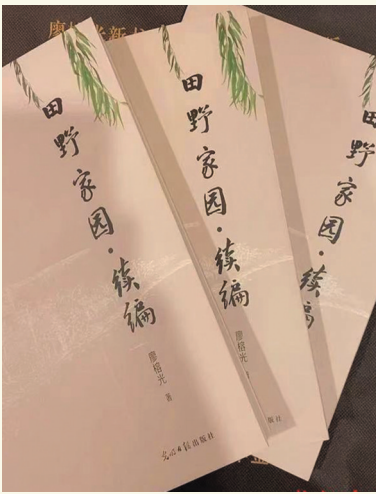 田野家园·续编
廖榙光 著
光明日报出版社
田野家园·续编
廖榙光
版社
田野家园·续编